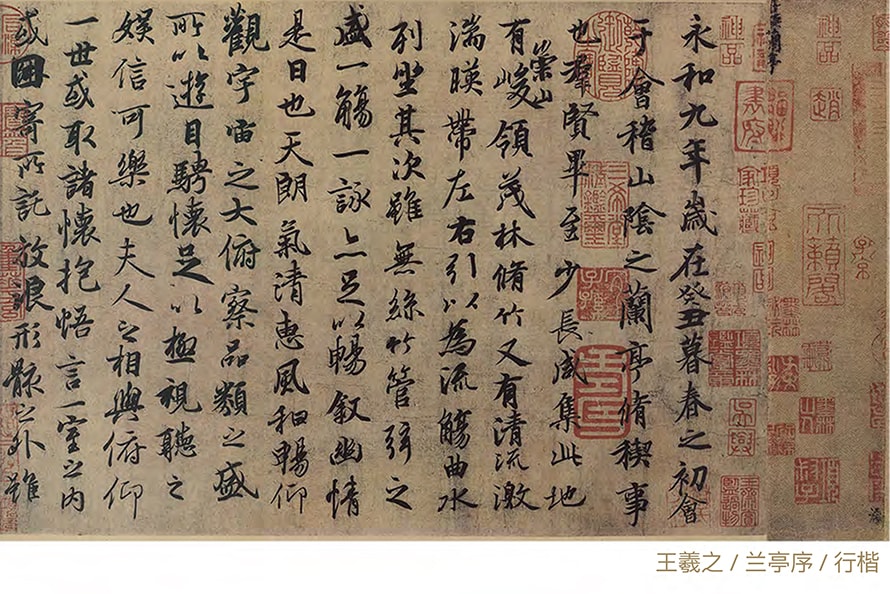 永和九年歲在癸丑暮春之初會
于會稽山陰之蘭亭脩稧事
也羣賢畢至少長咸集此地
有崇山峻領茂林脩竹又有清流激
湍暎帶左右引以為流觴曲水
列坐其次雖無絲竹管弦之
盛一觴一詠亦足以暢敘幽情
是日也天朗氣清惠風和暢仰
觀宇宙之大俯察品類之盛
所以遊目騁懷足以極視聽之
娛信可樂也夫人之相與俯仰
一世或取諸懷抱悟言一室之內
或因寄所託放浪形骸之外雖
王羲之 / 兰亭序 / 行楷